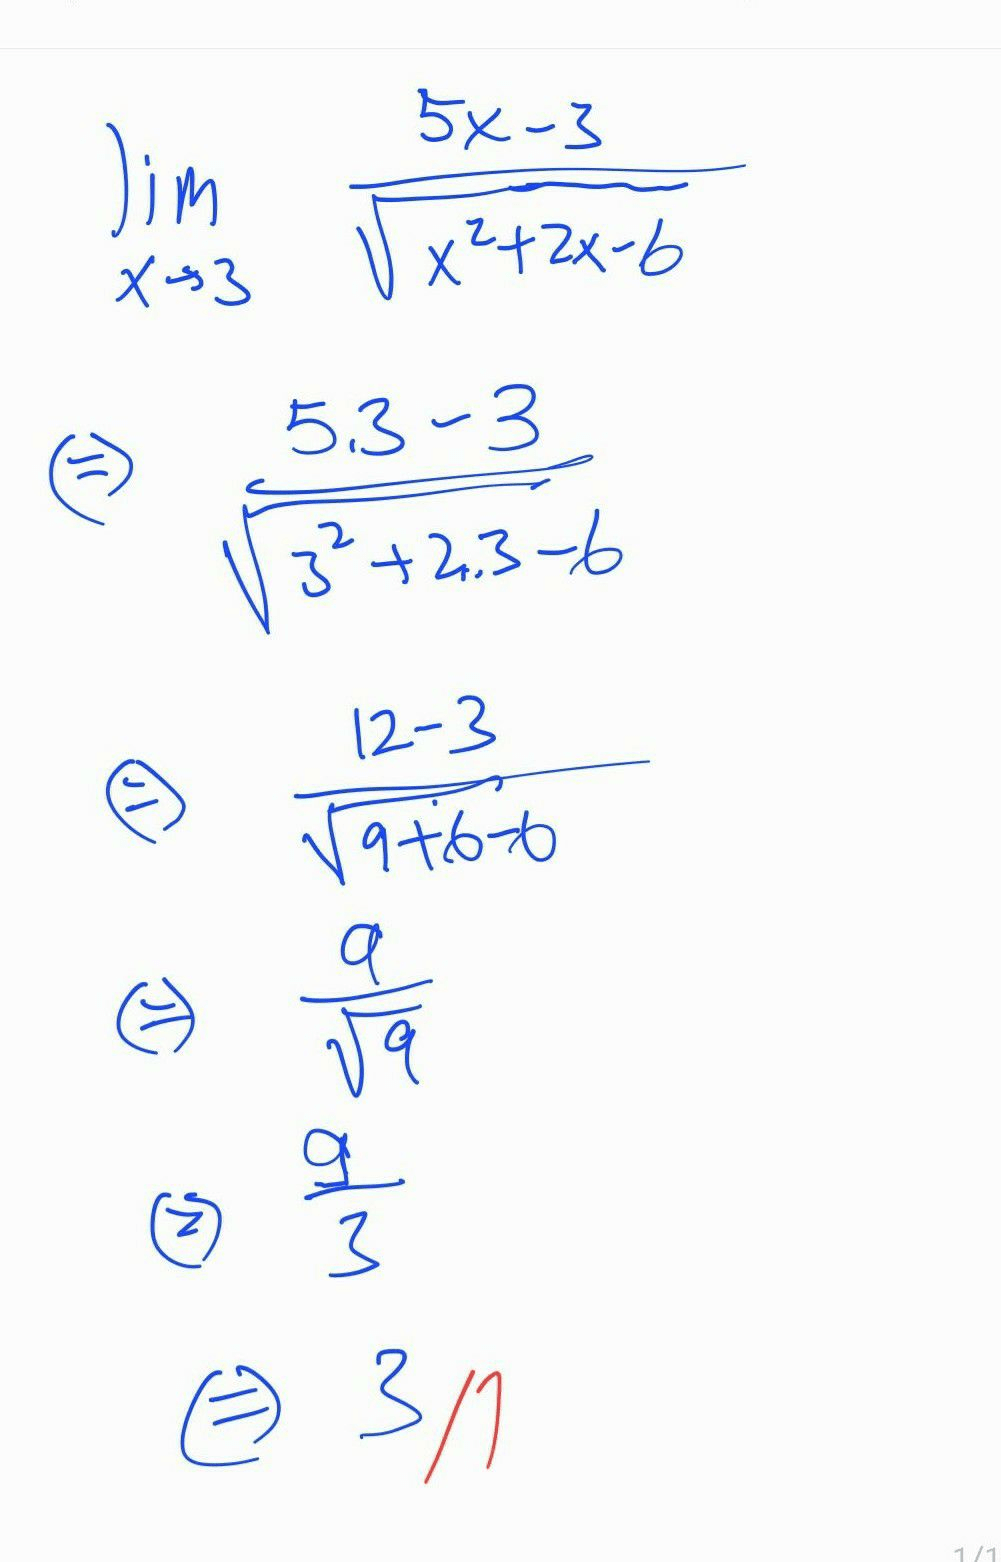 lim x→3 (5x-3)/√(x²+2x-6)
(=) (5.3-3)/√(3²+2.3-6)
(=) (12-3)/√(9+6-6)
(=) 9/√9
(=) 9/3
(=) 3 //
1/1